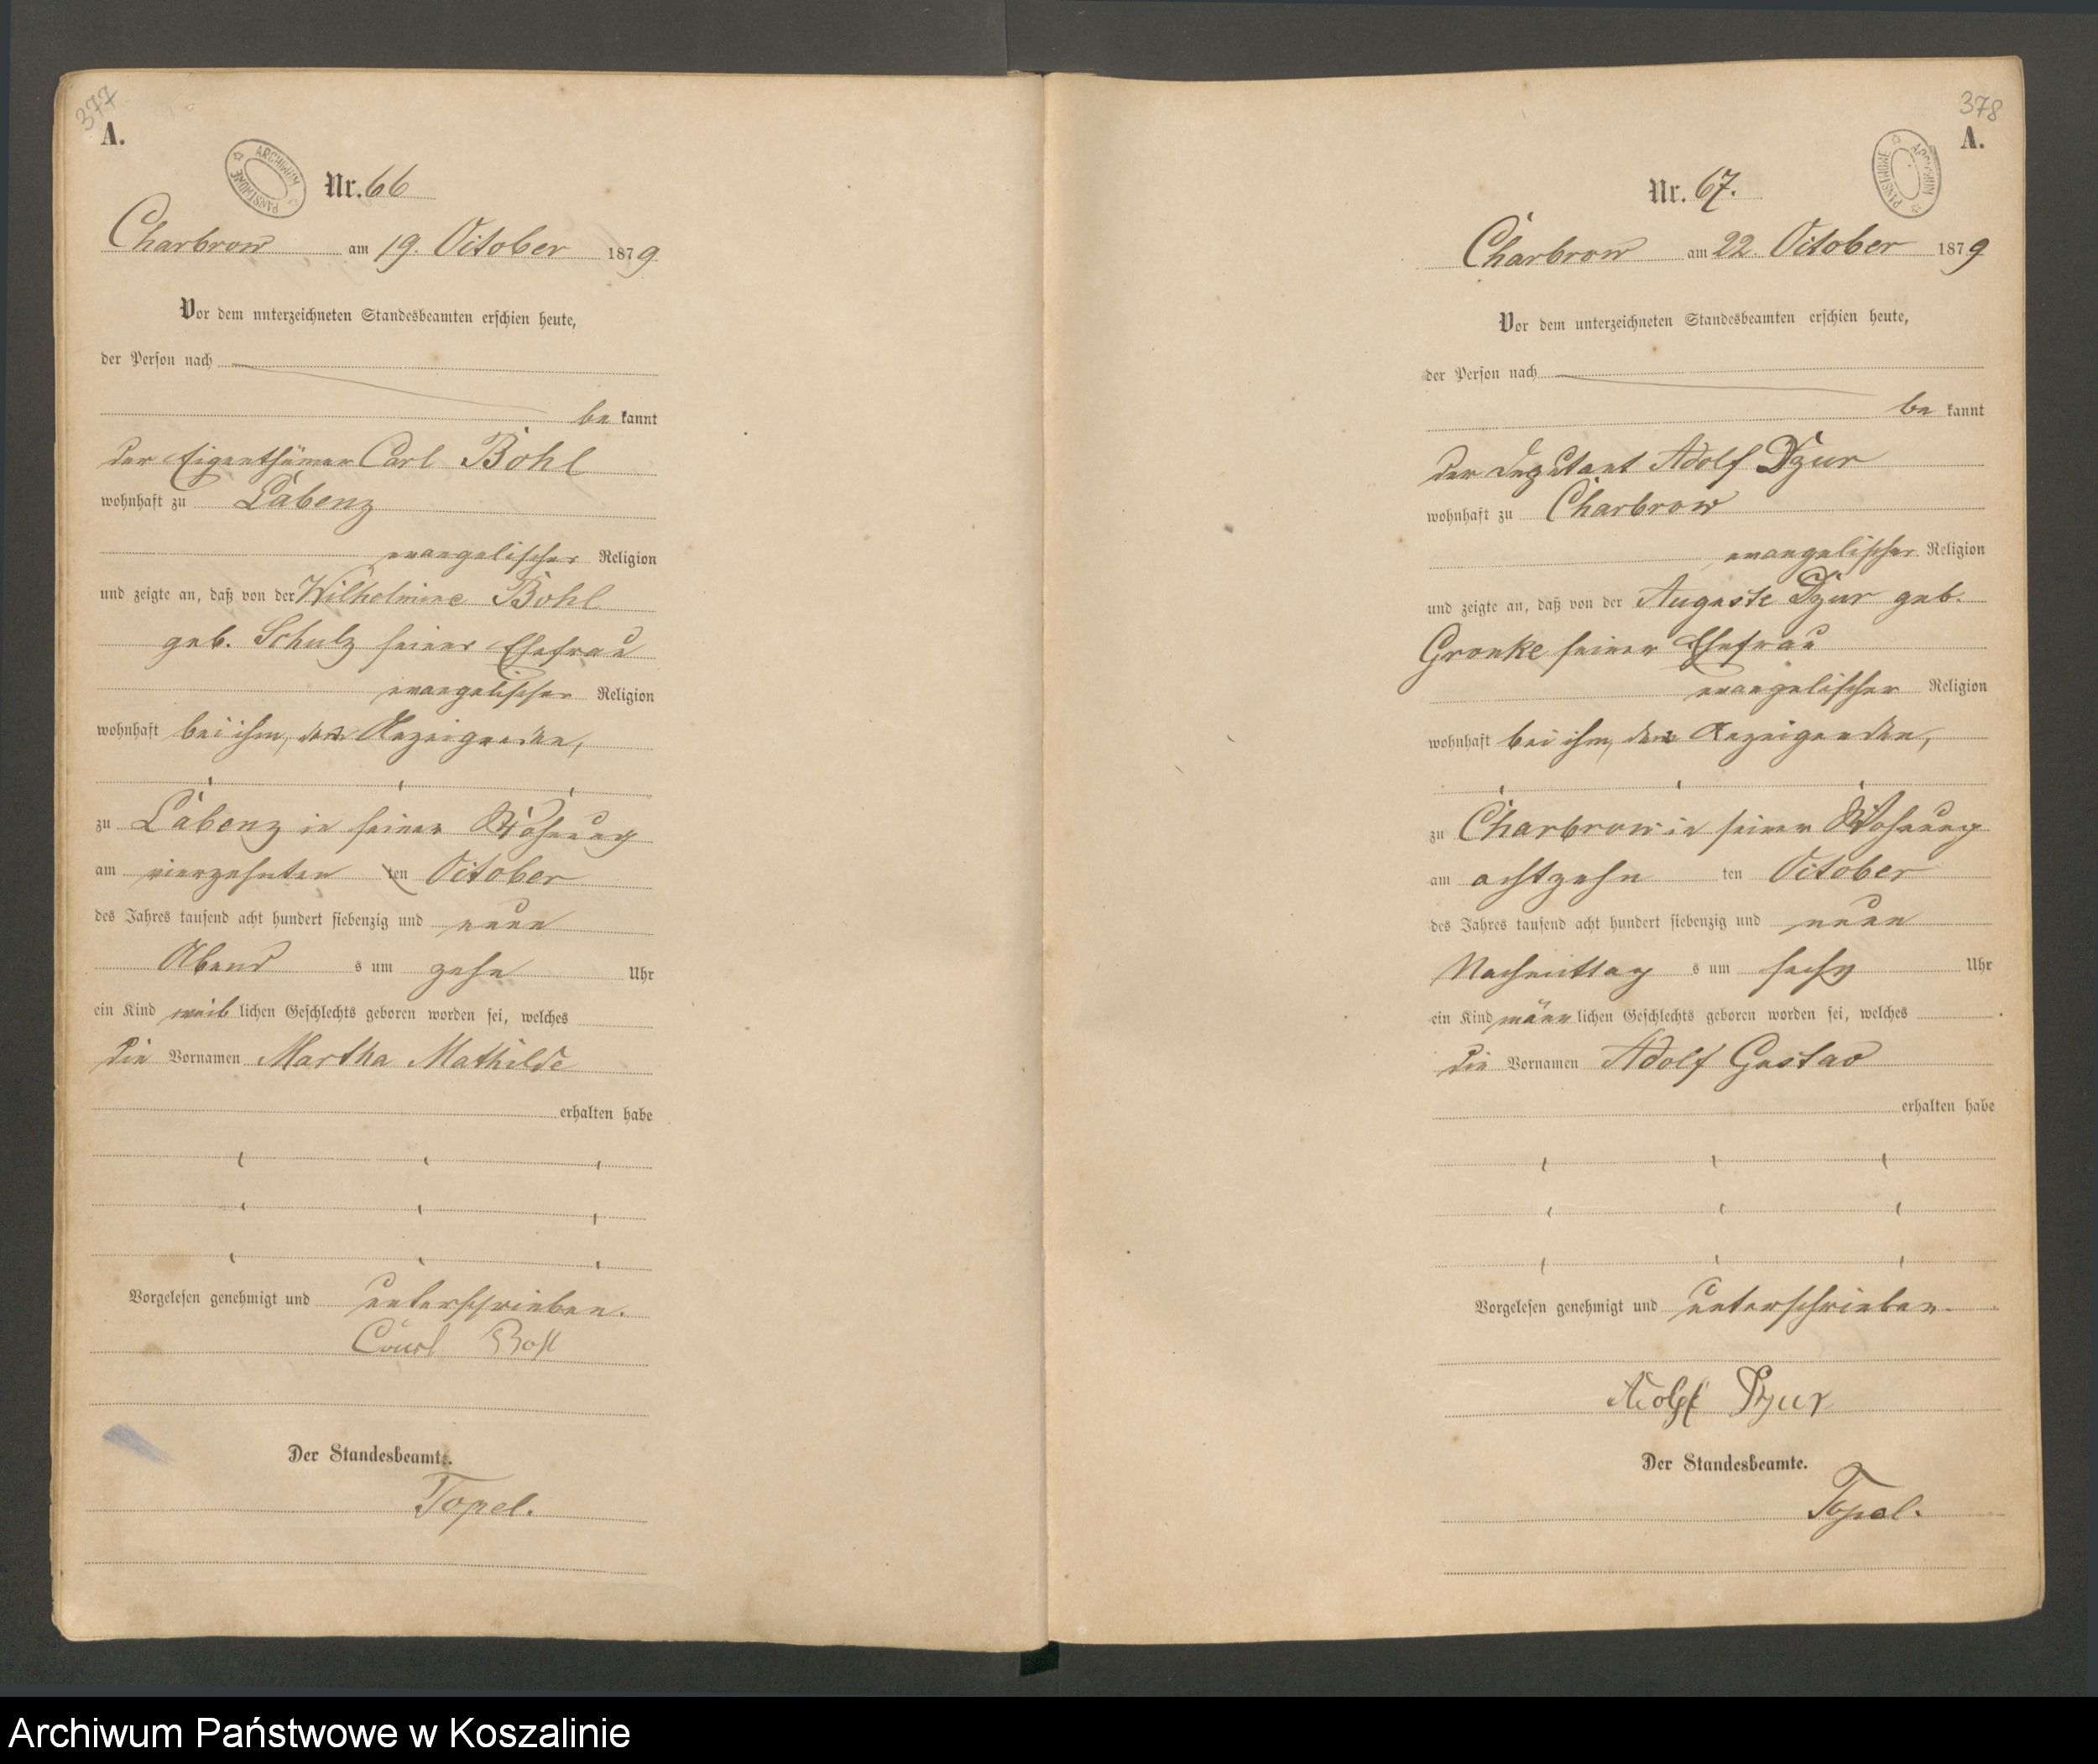 377
A.
ARCHIWUM PAŃSTWOWE
Nr. 66
Charbrow am 19. October 1879
Vor dem unterzeichneten Standesbeamten erschien heute,
der Person nach
be kannt
der Eigenthümer Carl Bohl
wohnhaft zu Labenz
evangelischer Religion
und zeigte an, daß von der Wilhelmine Bohl
geb. Schulz seiner Ehefrau
evangelischer Religion
wohnhaft bei ihm, dem Anzeigenden,
zu Labenz in seiner Wohnung
am vierzehnten ten October
des Jahres tausend acht hundert siebenzig und neun
Abend s um zehn Uhr
ein Kind weib lichen Geschlechts geboren worden sei, welches
die Vornamen Martha Mathilde
erhalten habe
Vorgelesen genehmigt und unterschrieben.
Carl Bohl
Der Standesbeamte.
Topel.
378
A.
ARCHIWUM PAŃSTWOWE
Nr. 67.
Charbrow am 22. October 1879
Vor dem unterzeichneten Standesbeamten erschien heute,
der Person nach
be kannt
der Deputant Adolf Dzur
wohnhaft zu Charbrow
evangelischer Religion
und zeigte an, daß von der Auguste Dzur geb.
Gronke seiner Ehefrau
evangelischer Religion
wohnhaft bei ihm, dem Anzeigenden,
zu Charbrow in seiner Wohnung
am achtzehn ten October
des Jahres tausend acht hundert siebenzig und neun
Nachmittag s um sechs Uhr
ein Kind männ lichen Geschlechts geboren worden sei, welches
die Vornamen Adolf Gustav
erhalten habe
Vorgelesen genehmigt und unterschrieben.
Adolf Dzur
Der Standesbeamte.
Topel.
Archiwum Państwowe w Koszalinie